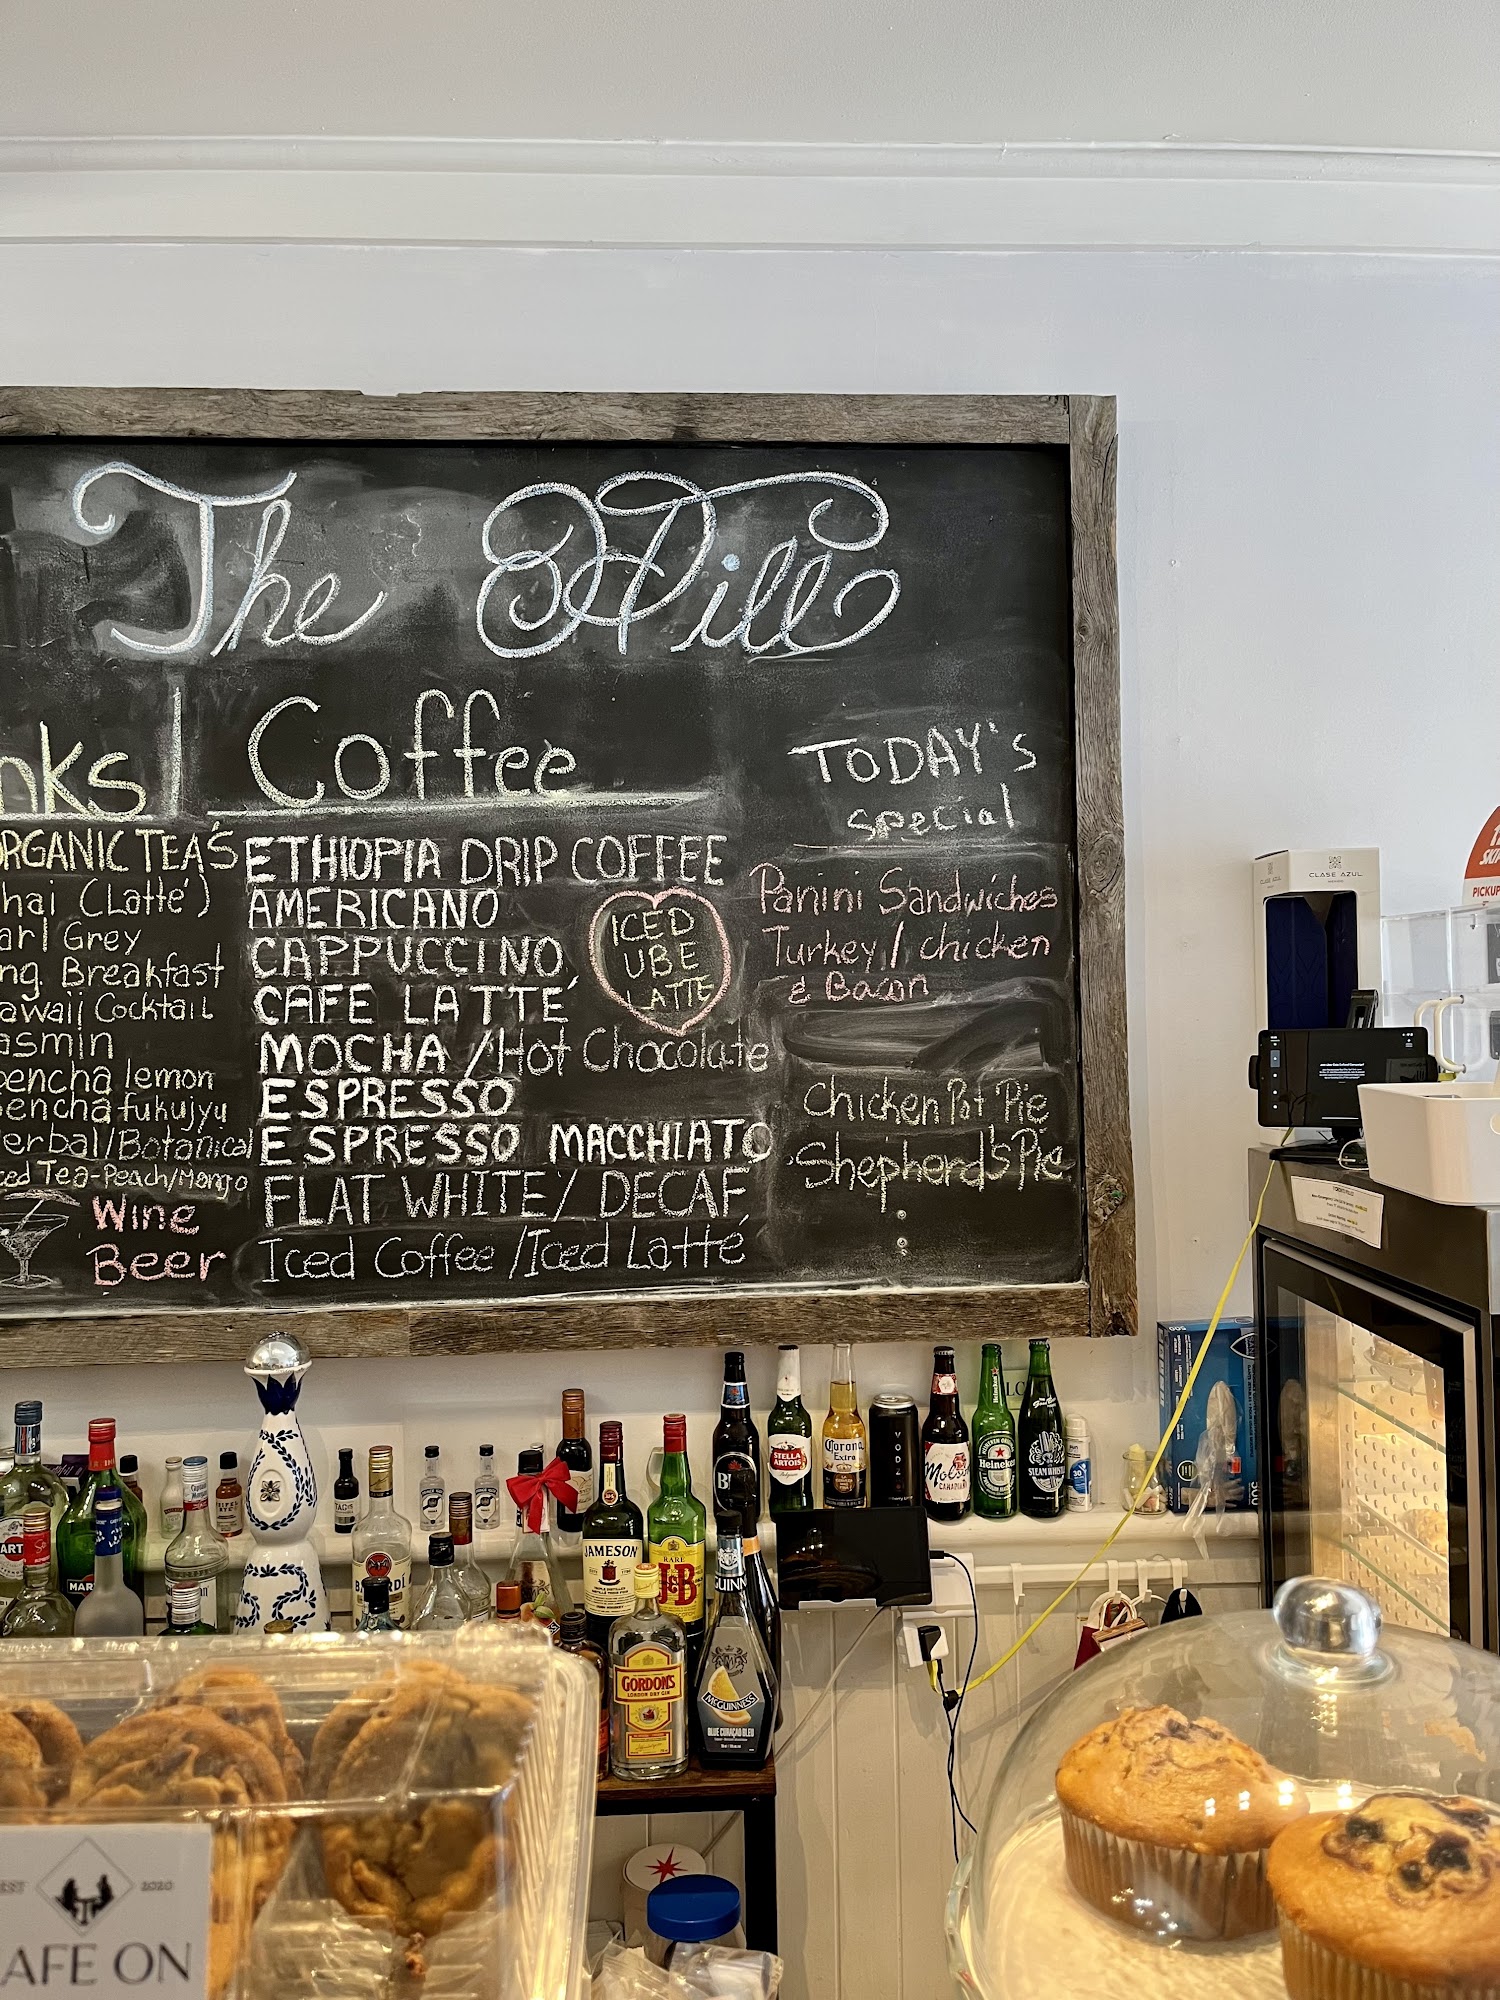 The Hill
nks
ORGANIC TEA'S
hai (Latté)
arl Grey
ng. Breakfast
awaii Cocktail
asmin
encha lemon
encha fukujyu
erbal/Botanical
ced Tea-Peach/Mango
Wine
Beer
Coffee
ETHIOPIA DRIP COFFEE
AMERICANO
CAPPUCCINO
CAFE LATTE'
MOCHA / Hot Chocolate
ESPRESSO
ESPRESSO MACCHIATO
FLAT WHITE / DECAF
Iced Coffee / Iced Latté
ICED
UBE
LATTE
TODAY's
special
Panini Sandwiches
Turkey / chicken
& Bacon
Chicken Pot Pie
Shepherd's Pie
CLASE AZUL
PICKUP
STELLA
ARTOIS
Corona
Extra
VODZ
Molson
CANADIAN
Heineken
STEAM WHISTLE
JAMESON
RARE
J&B
GORDON'S
LONDON DRY GIN
McGUINNESS
BLUE CURAÇAO BLEU
EST 2020
AFE ON